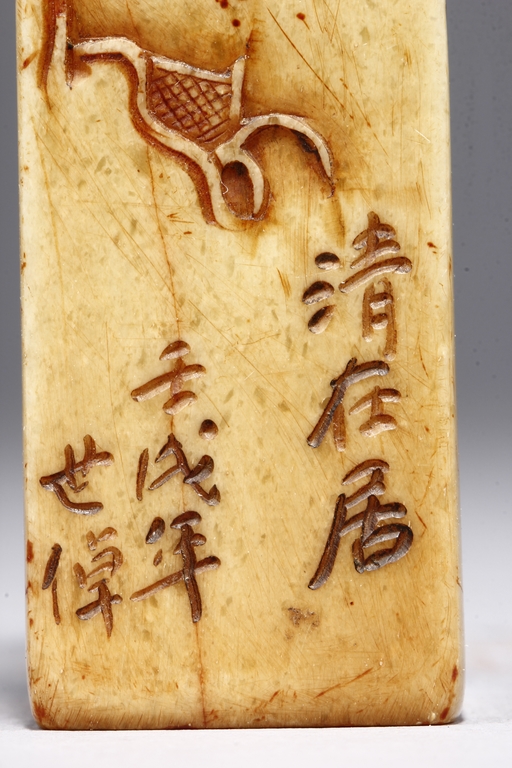 清在居
壬戌年
世倬